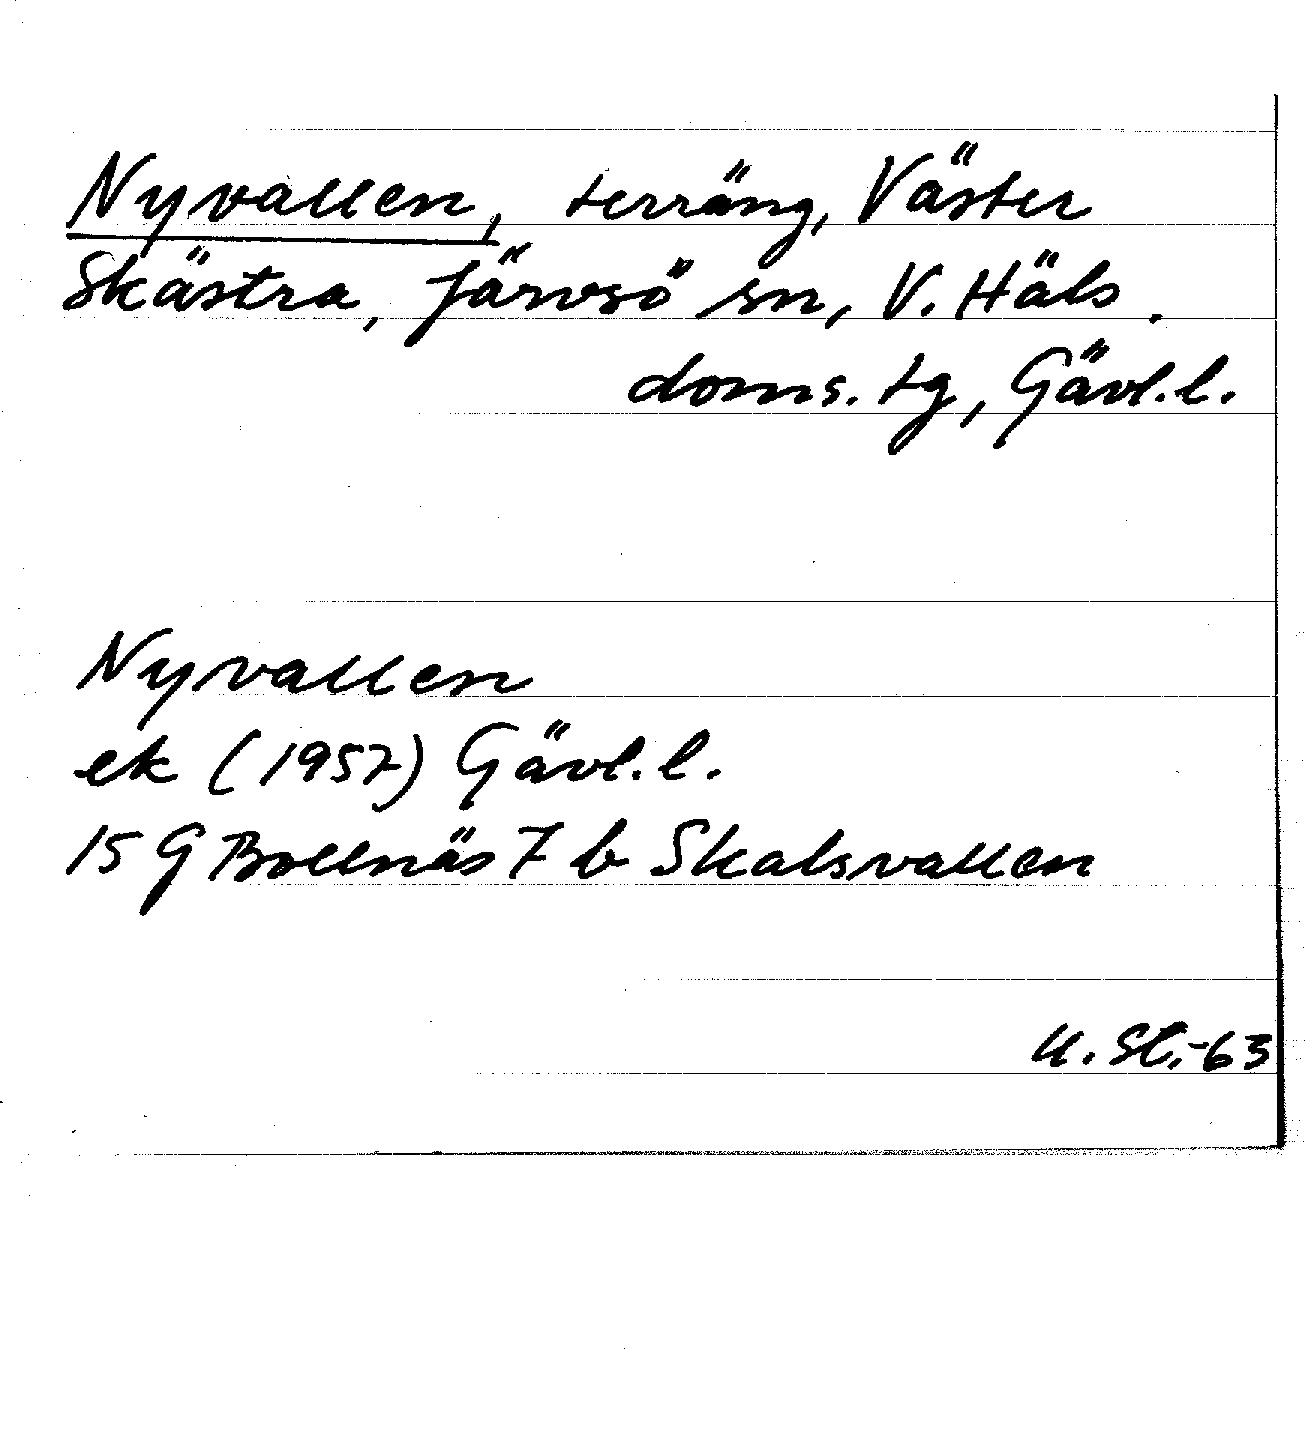 Nyvallen, terräng, Väster
Skästra, Järvsö sn, V. Häls.
doms. tg, Gävl.l.
Nyvallen
ek (1957) Gävl.l.
15 G Bollnäs 7 b Skalsvallen
U. St.-63